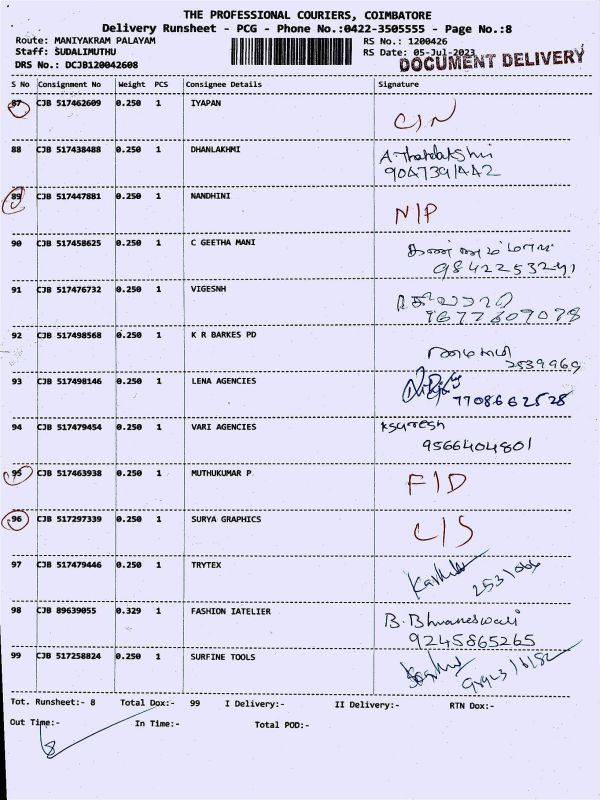 THE PROFESSIONAL COURIERS, COIMBATORE
Delivery Runsheet - PCG - Phone No.:0422-3505555 - Page No.:8
Route: MANIYAKRAM PALAYAM RS No.: 1200426
Staff: SUDALIMUTHU RS Date: 05-Jul-2023
DRS No.: DCJB120042608 DOCUMENT DELIVERY
S No Consignment No Weight PCS Consignee Details Signature
87 CJB 517462609 0.250 1 IYAPAN
C/N
88 CJB 517438488 0.250 1 DHANLAKHMI
9047391442
89 CJB 517447881 0.250 1 NANDHINI
N/P
90 CJB 517458625 0.250 1 C GEETHA MANI
9842253241
91 CJB 517476732 0.250 1 VIGESNH
9677609078
92 CJB 517498568 0.250 1 K R BARKES PD
2539969
93 CJB 517498146 0.250 1 LENA AGENCIES
7708662528
94 CJB 517479454 0.250 1 VARI AGENCIES
Ksuresh
9566404801
95 CJB 517463938 0.250 1 MUTHUKUMAR P
F/D
96 CJB 517297339 0.250 1 SURYA GRAPHICS
L/S
97 CJB 517479446 0.250 1 TRYTEX
98 CJB 89639055 0.329 1 FASHION IATELIER
B. Bhuaneswali
9245865265
99 CJB 517258824 0.250 1 SURFINE TOOLS
Tot. Runsheet:- 8 Total Dox:- 99 I Delivery:- II Delivery:- RTN Dox:-
Out Time:- In Time:- Total POD:-
8